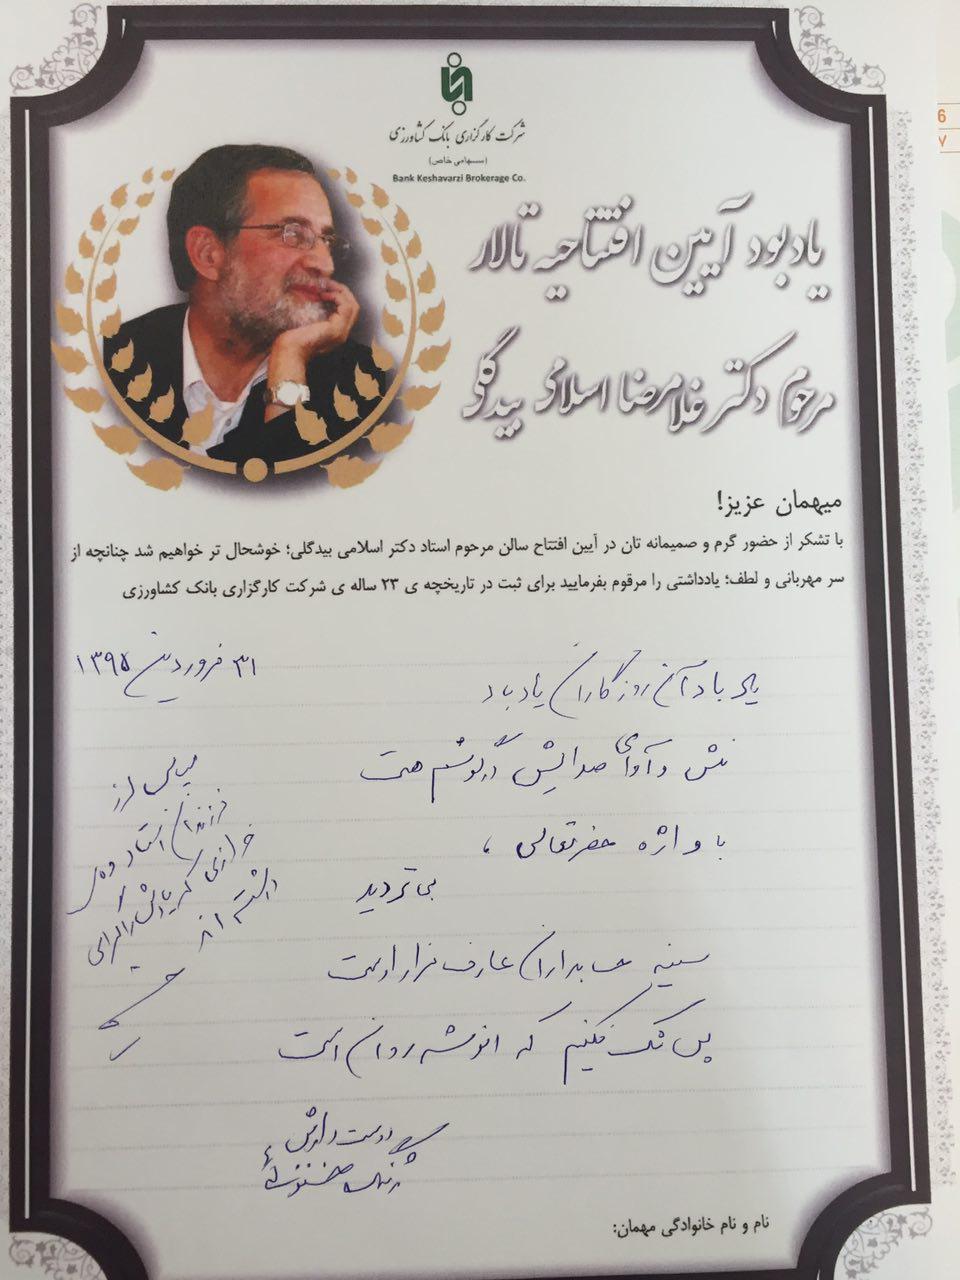 شرکت کارگزاری بانک کشاورزی
(سهامی خاص)
Bank Keshavarzi Brokerage Co.
یادبود آیین افتتاحیه تالار
مرحوم دکتر غلامرضا اسلامی بیدگلی
میهمان عزیز!
با تشکر از حضور گرم و صمیمانه تان در آیین افتتاح سالن مرحوم استاد دکتر اسلامی بیدگلی؛ خوشحال تر خواهیم شد چنانچه از
سر مهربانی و لطف؛ یادداشتی را مرقوم بفرمایید برای ثبت در تاریخچه ی ۲۳ ساله ی شرکت کارگزاری بانک کشاورزی
۳۱ فروردین ۱۳۹۵
یاد باد آن روزگاران یاد باد
نقش و آوای صدایش در گوشم هست
با واژه حضرتعالی ،
بی تردید
سینه حسابداران عارف مزار اوست
پس شک نکنیم که انوشه روان است
سپاس از
فرزندان استاد و
را گرامی
داشته اند
دوست دارش
نام و نام خانوادگی مهمان:
6
۷